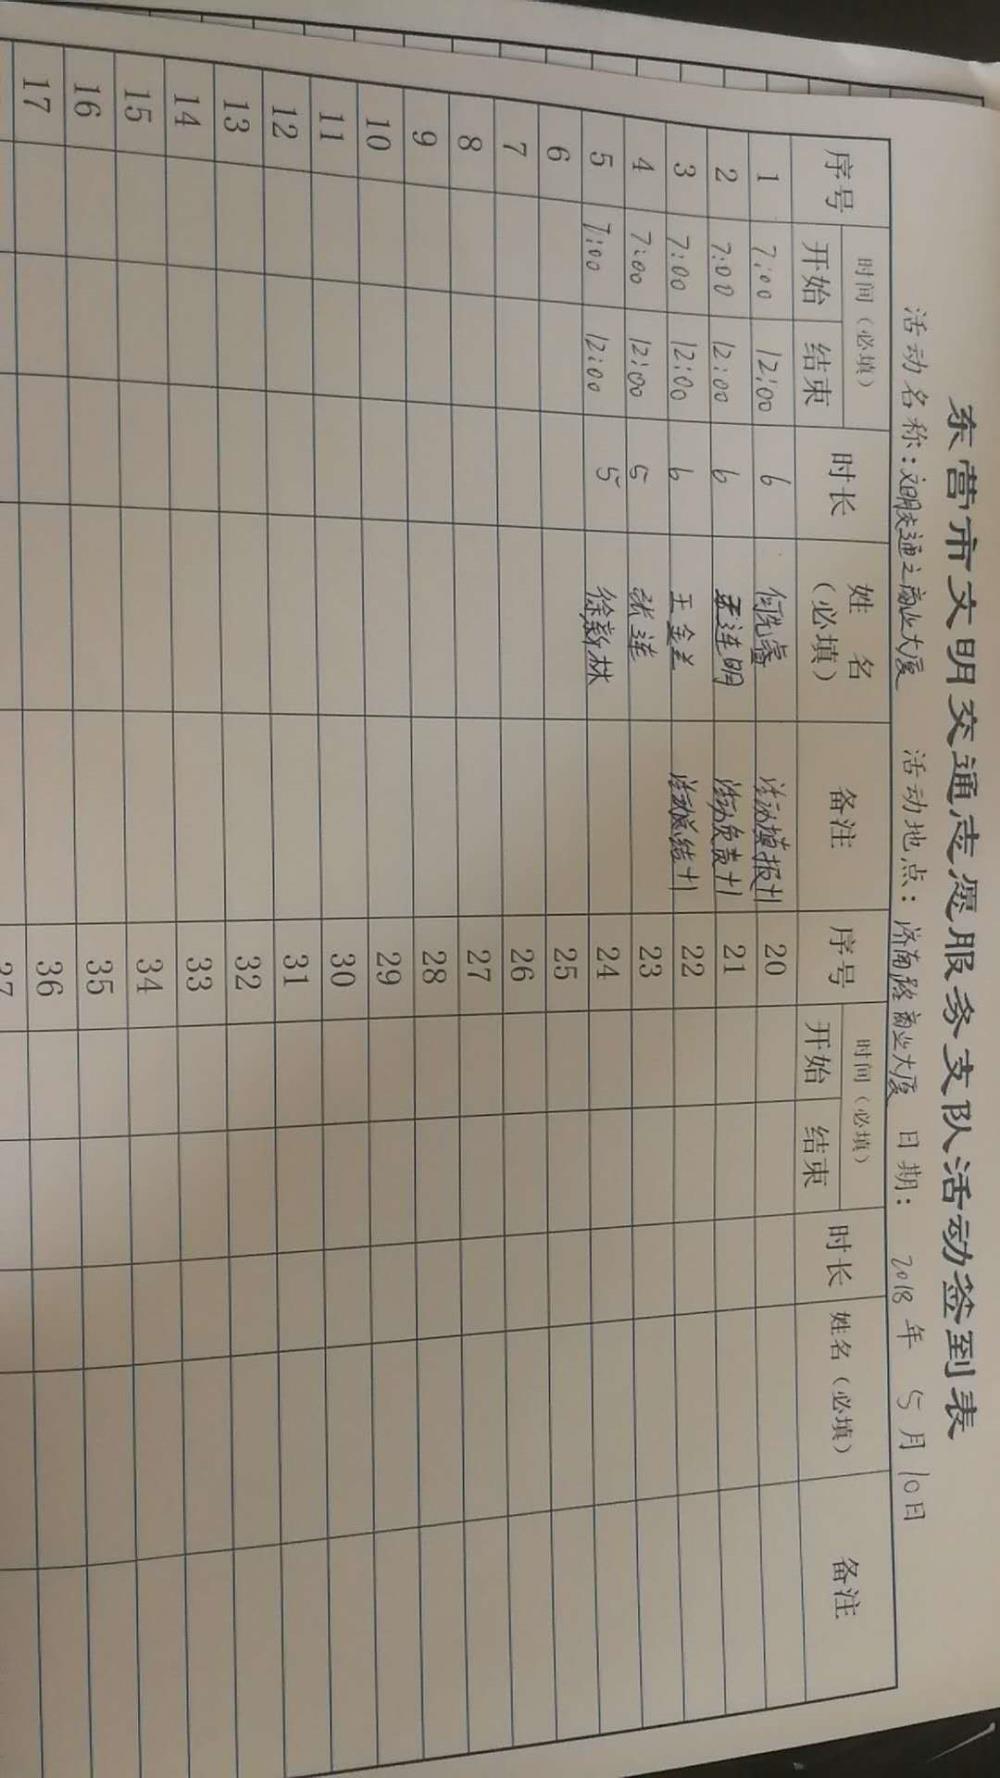 东营市文明交通志愿服务支队活动签到表
活动名称：文明交通之商业大厦 活动地点：济南路商业大厦 日期： 2018年 5月10日
序号 时间（必填） 时长 姓名（必填） 备注 序号 时间（必填） 时长 姓名（必填） 备注
开始 结束 开始 结束
1 7:00 12:00 6 何先睿 活动填报+1 20
2 7:00 12:00 6 孟连明 活动负责+1 21
3 7:00 12:00 6 王金兰 活动总结+1 22
4 7:00 12:00 5 张莲 23
5 7:00 12:00 5 徐新林 24
6 25
7 26
8 27
9 28
10 29
11 30
12 31
13 32
14 33
15 34
16 35
17 36
37